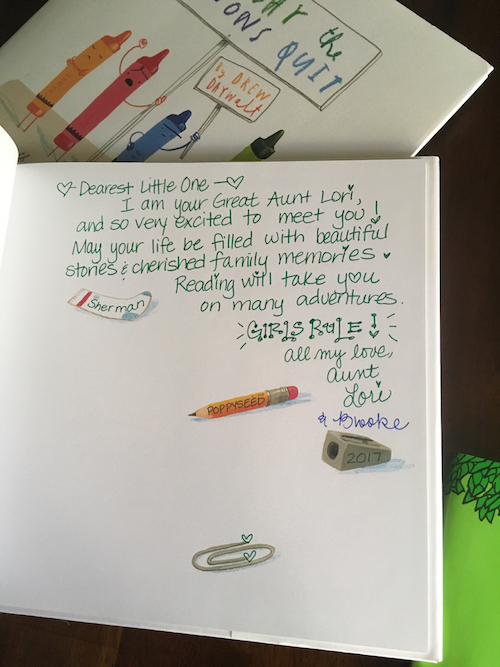 THE DAY the
CRAYONS QUIT
by DREW
DAYWalt
♡ Dearest Little One ~♡
I am your Great Aunt Lori,
and so very excited to meet you!
May your life be filled with beautiful
stories & cherished family memories ♥
Reading will take you
on many adventures.
GIRLS RULE!
all my love,
aunt
Lori
& Brooke
Sherman
POPPYSEED
2017